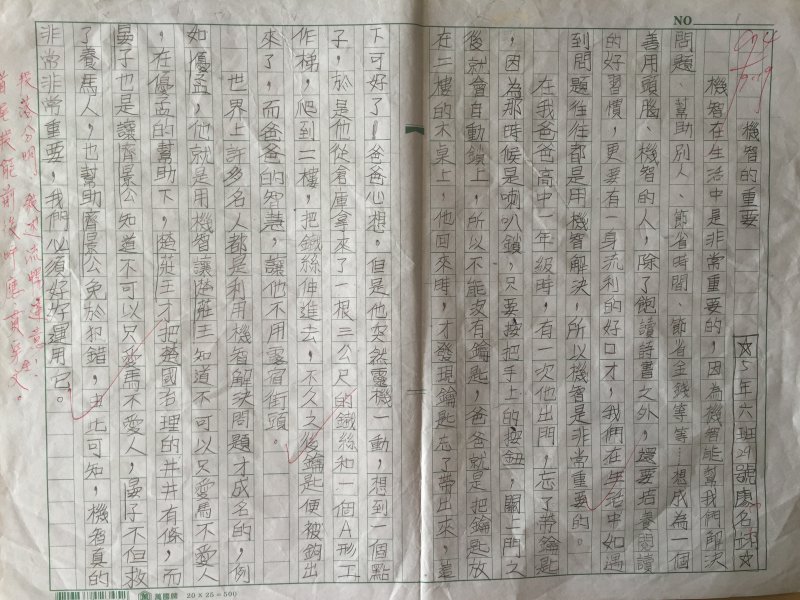 NO
機智的重要
☆5年六班29號
機智在生活中是非常重要的,因為機智能幫我們解決
問題、幫助別人、節省時間、節省金錢等等…想成為一個
善用頭腦、機智的人,除了飽讀詩書之外,還要培養閱讀
的好習慣,更要有一身流利的好口才,我們在生活中如遇
到問題往往都是用機智解決,所以機智是非常重要的。
在我爸爸高中一年級時,有一次他出門,忘了帶鑰匙
,因為那時候是喇叭鎖,只要按把手上的按鈕,關上門之
後就會自動鎖上,所以不能沒有鑰匙,爸爸就是把鑰匙放
在二樓的木桌上,他回來時,才發現鑰匙忘了帶出來,差
下可好了!爸爸心想,但是他突然靈機一動,想到一個點
子,於是他從倉庫拿來了一根三公尺的鐵絲和一個A形工
作梯,爬到二樓,把鐵絲伸進去,不久之後鑰匙便被鉤出
來了,而爸爸的智慧,讓他不用露宿街頭。
世界上許多名人都是利用機智解決問題才成名的,例
如優孟,他就是用機智讓楚莊王知道不可以只愛馬不愛人
,在優孟的幫助下,楚莊王才把楚國治理的井井有條,而
晏子也是讓齊景公知道不可以只愛馬不愛人,晏子不但救
了養馬人,也幫助齊景公免於犯錯,由此可知,機智真的
非常非常重要,我們必須好好運用它。
段落分明,敘述流暢達意!
首尾段能前後呼應貫串全文。
萬國牌 20×25=500